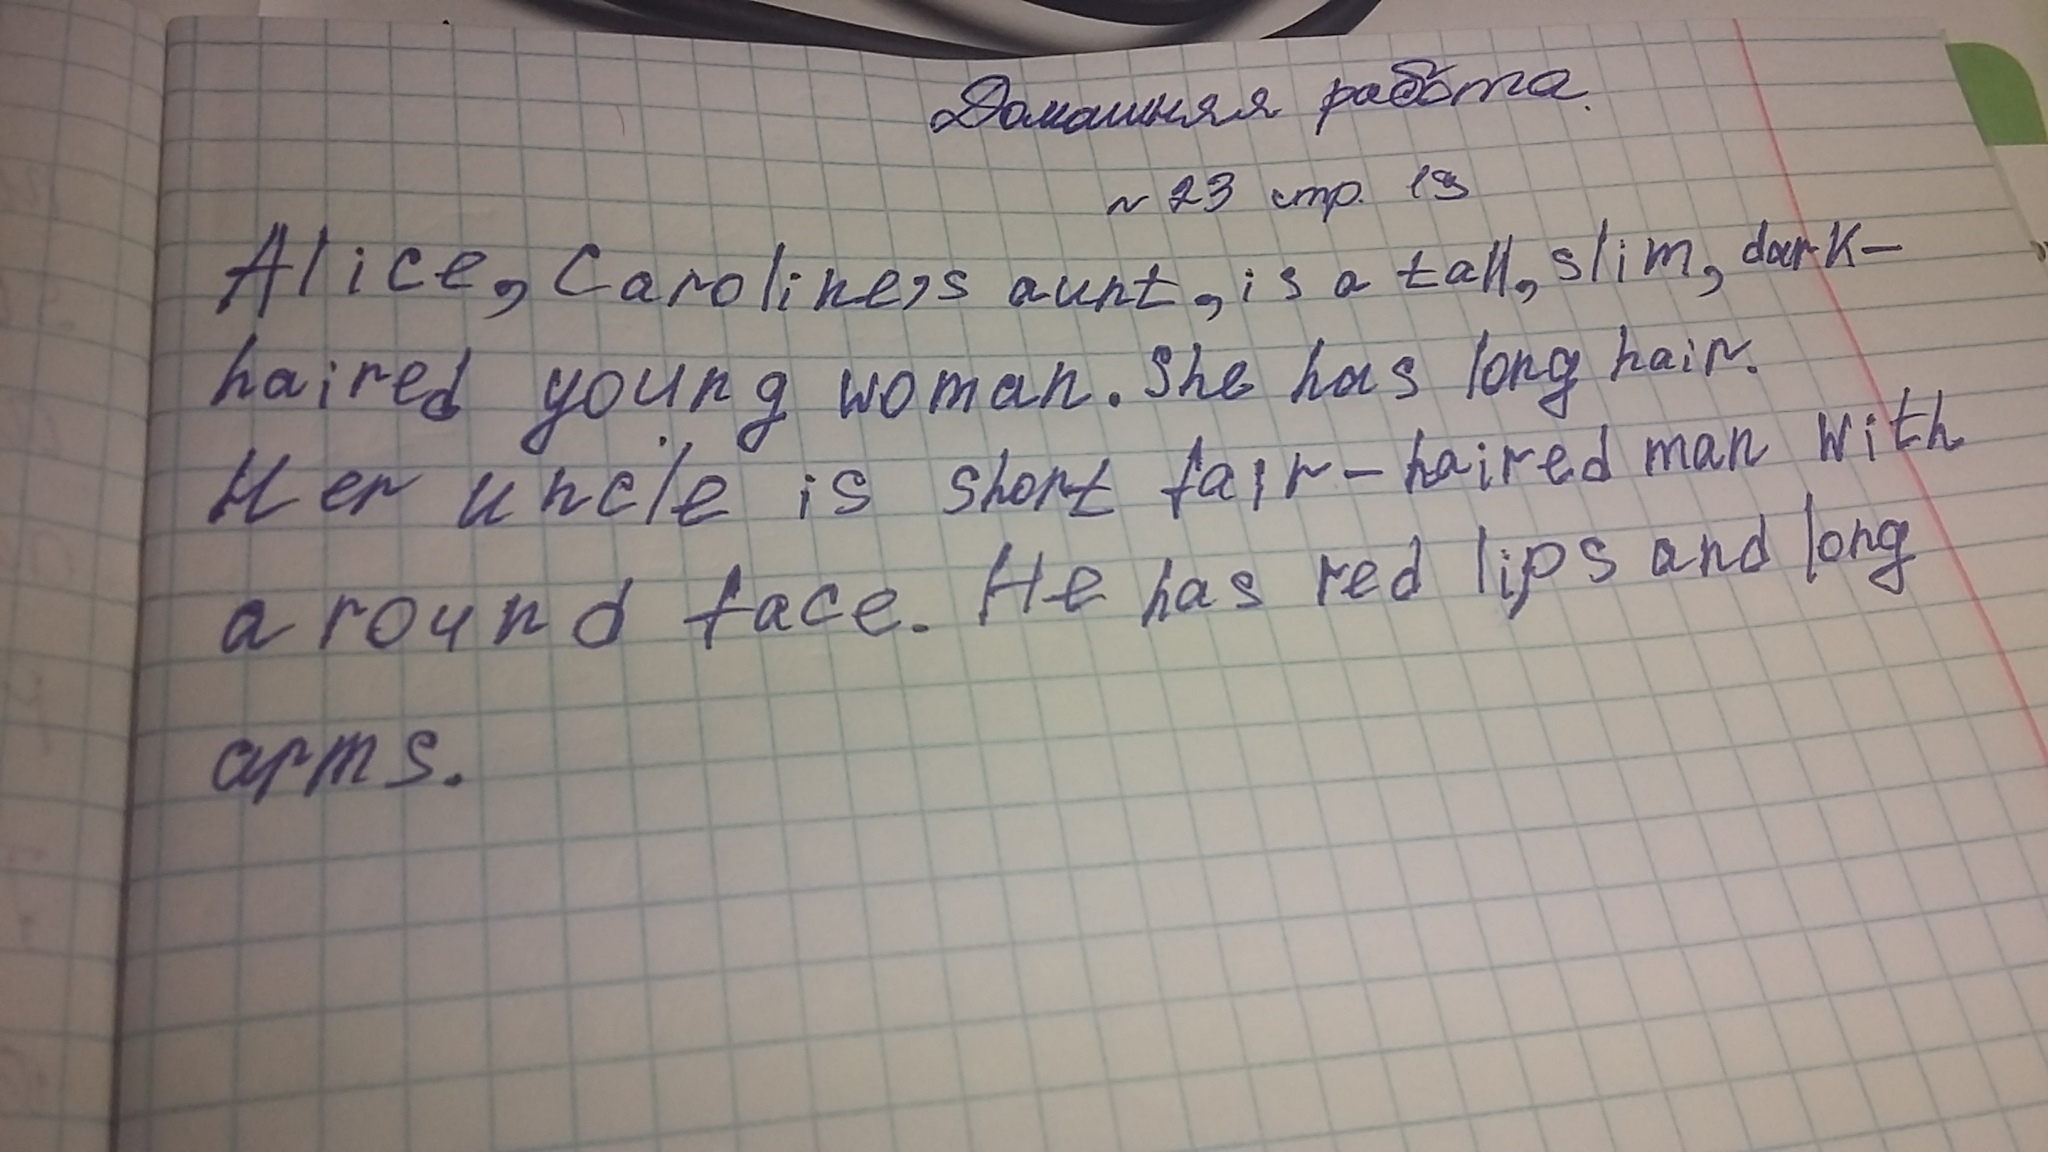 Домашняя работа.
~ 23 стр. 13
Alice, Caroline,s aunt, is a tall, slim, dark-
haired young woman. She has long hair.
Her uncle is short fair-haired man with
a round face. He has red lips and long
arms.